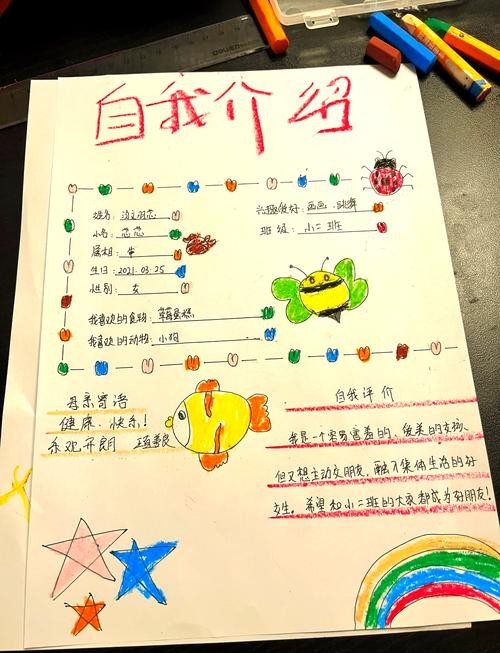 deli
自我介绍
姓名:
兴趣爱好: 画画、跳舞
小名: 芯芯
班级: 小二班
属相: 牛
生日: 2021.03.25
性别: 女
我喜欢的食物: 草莓蛋糕
我喜欢的动物: 小狗
母亲寄语
健康、快乐!
乐观开朗 正直善良
自我评价
我是一个容易害羞的、爱美的女孩、
但又想主动交朋友,融入集体生活的好
女生。希望和小二班的大家都成为好朋友!